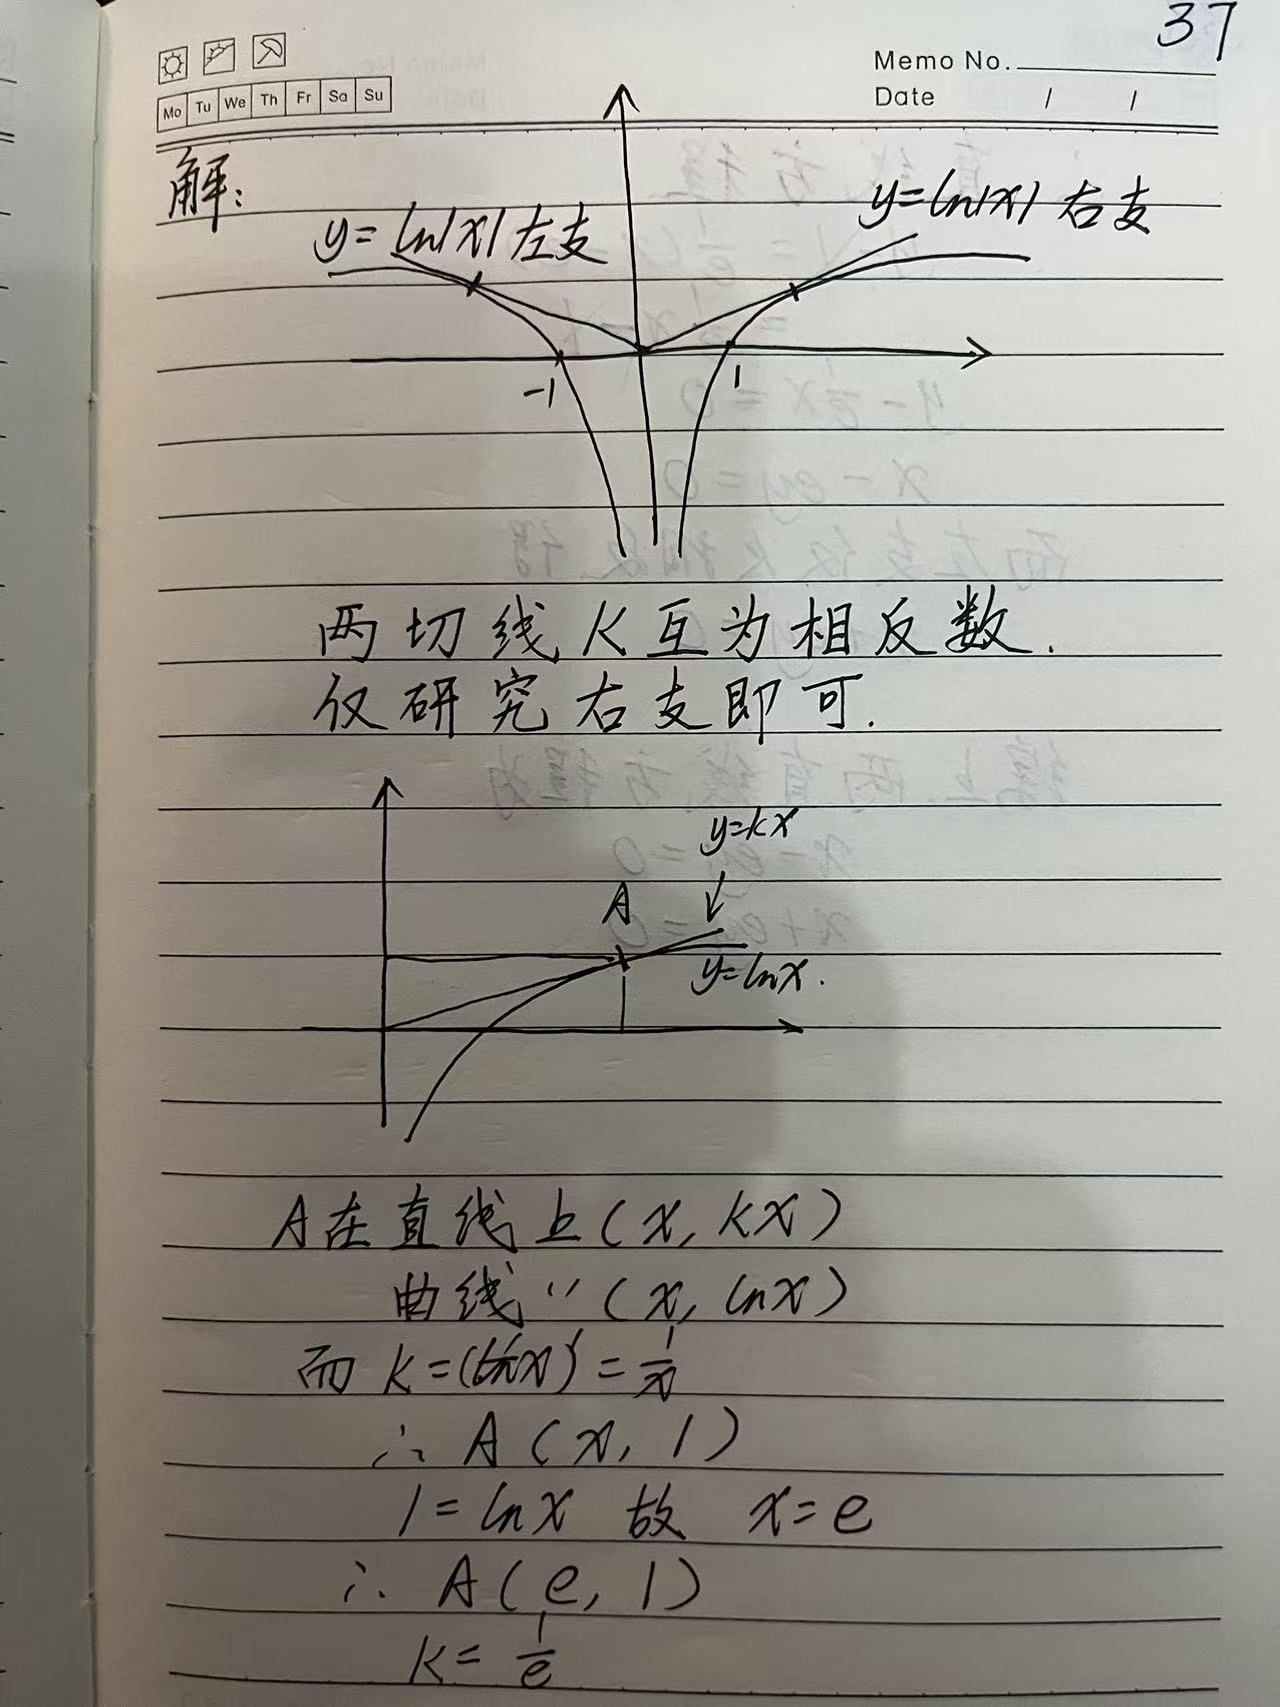 37
Memo No.
Mo Tu We Th Fr Sa Su
Date / /
解:
y=ln|x| 左支
y=ln|x| 右支
-1
1
两切线K互为相反数.
仅研究右支即可.
y=kx
A
y=lnx.
A在直线上(x, kx)
曲线〃(x, lnx)
而 k=(lnx)'=1/x
∴ A(x, 1)
1=lnx 故 x=e
∴ A(e, 1)
k=1/e